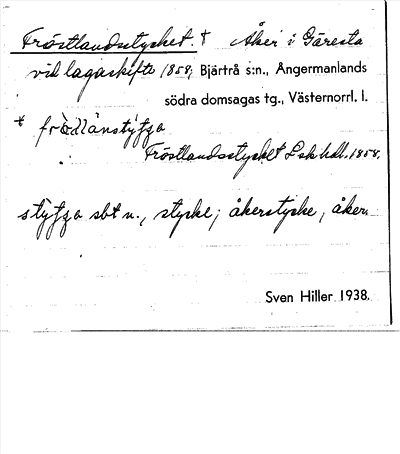 Fröstlandsstycket. † Åker i Gäresta
vid lagaskifte 1858; Bjärtrå s:n., Ångermanlands
södra domsagas tg., Västernorrl. l.
Fröstlandsstycket Lsk hdl. 1858.
sbt n., stycke; åkerstycke, åker
Sven Hiller 1938.